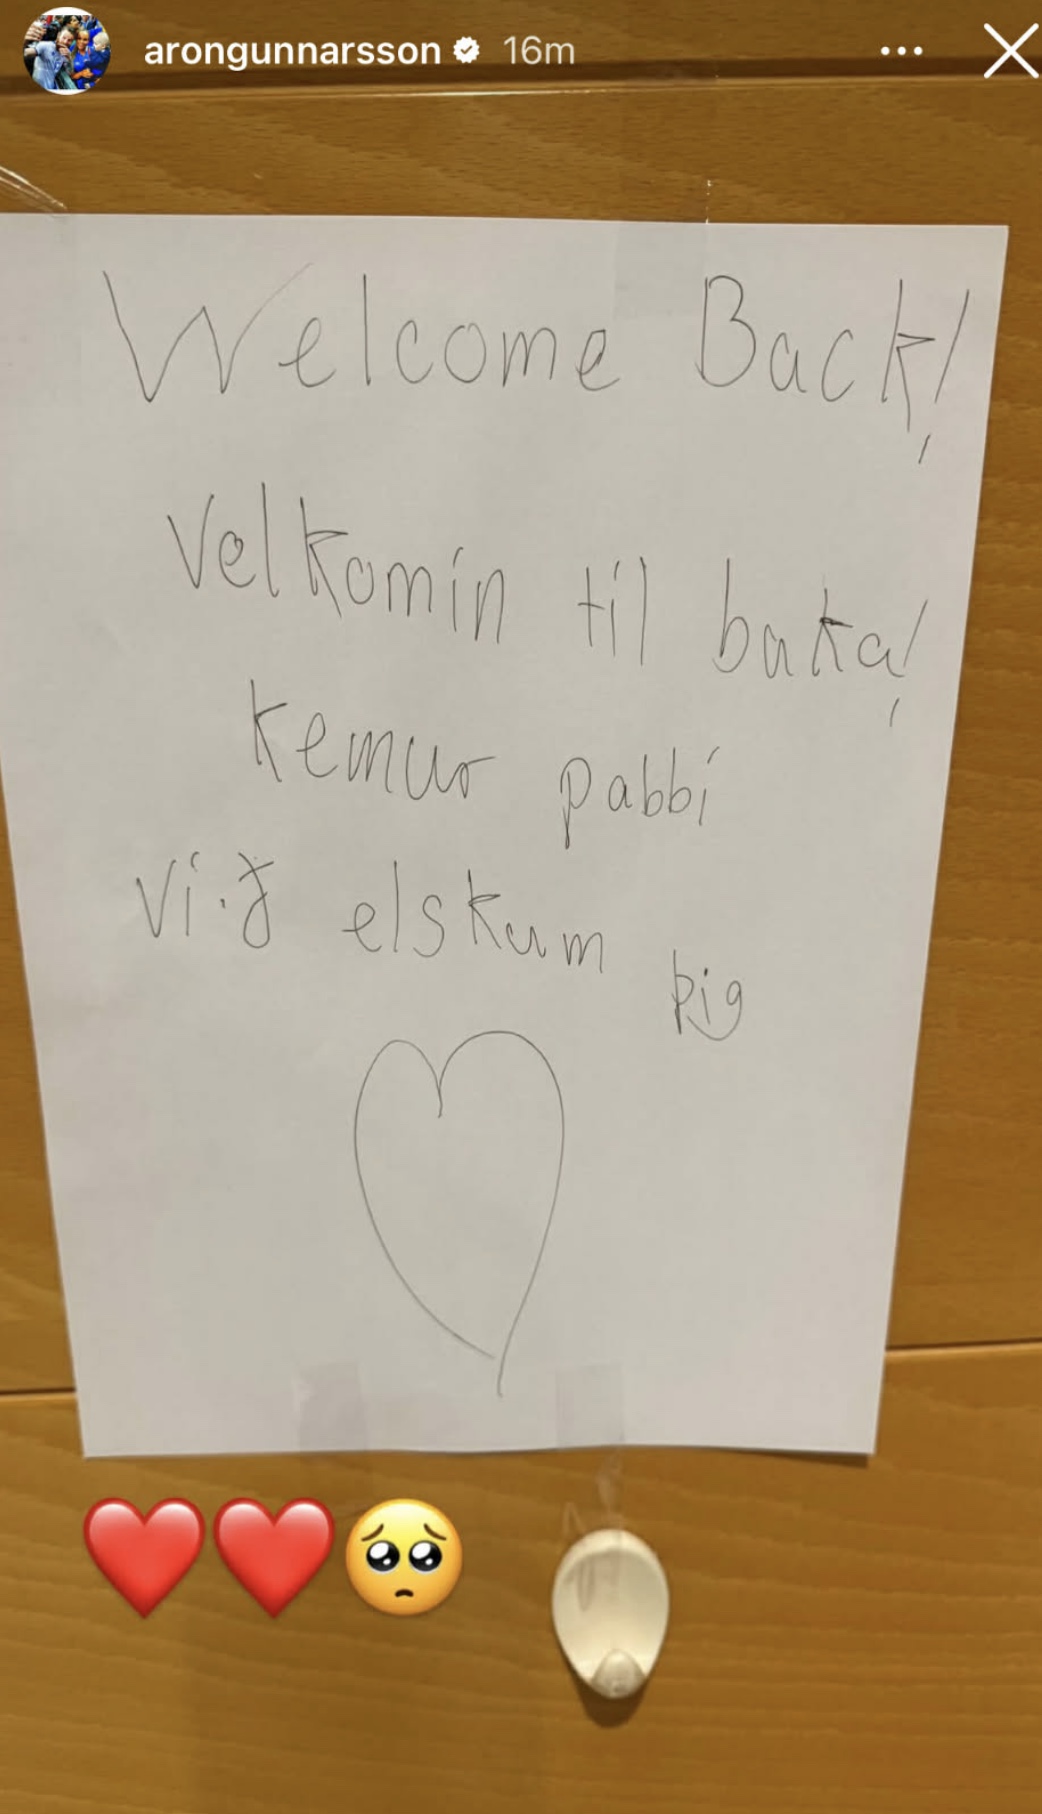 arongunnarsson 16m
Welcome Back!
Velkomin til baka!
kemur pabbi
Við elskum þig